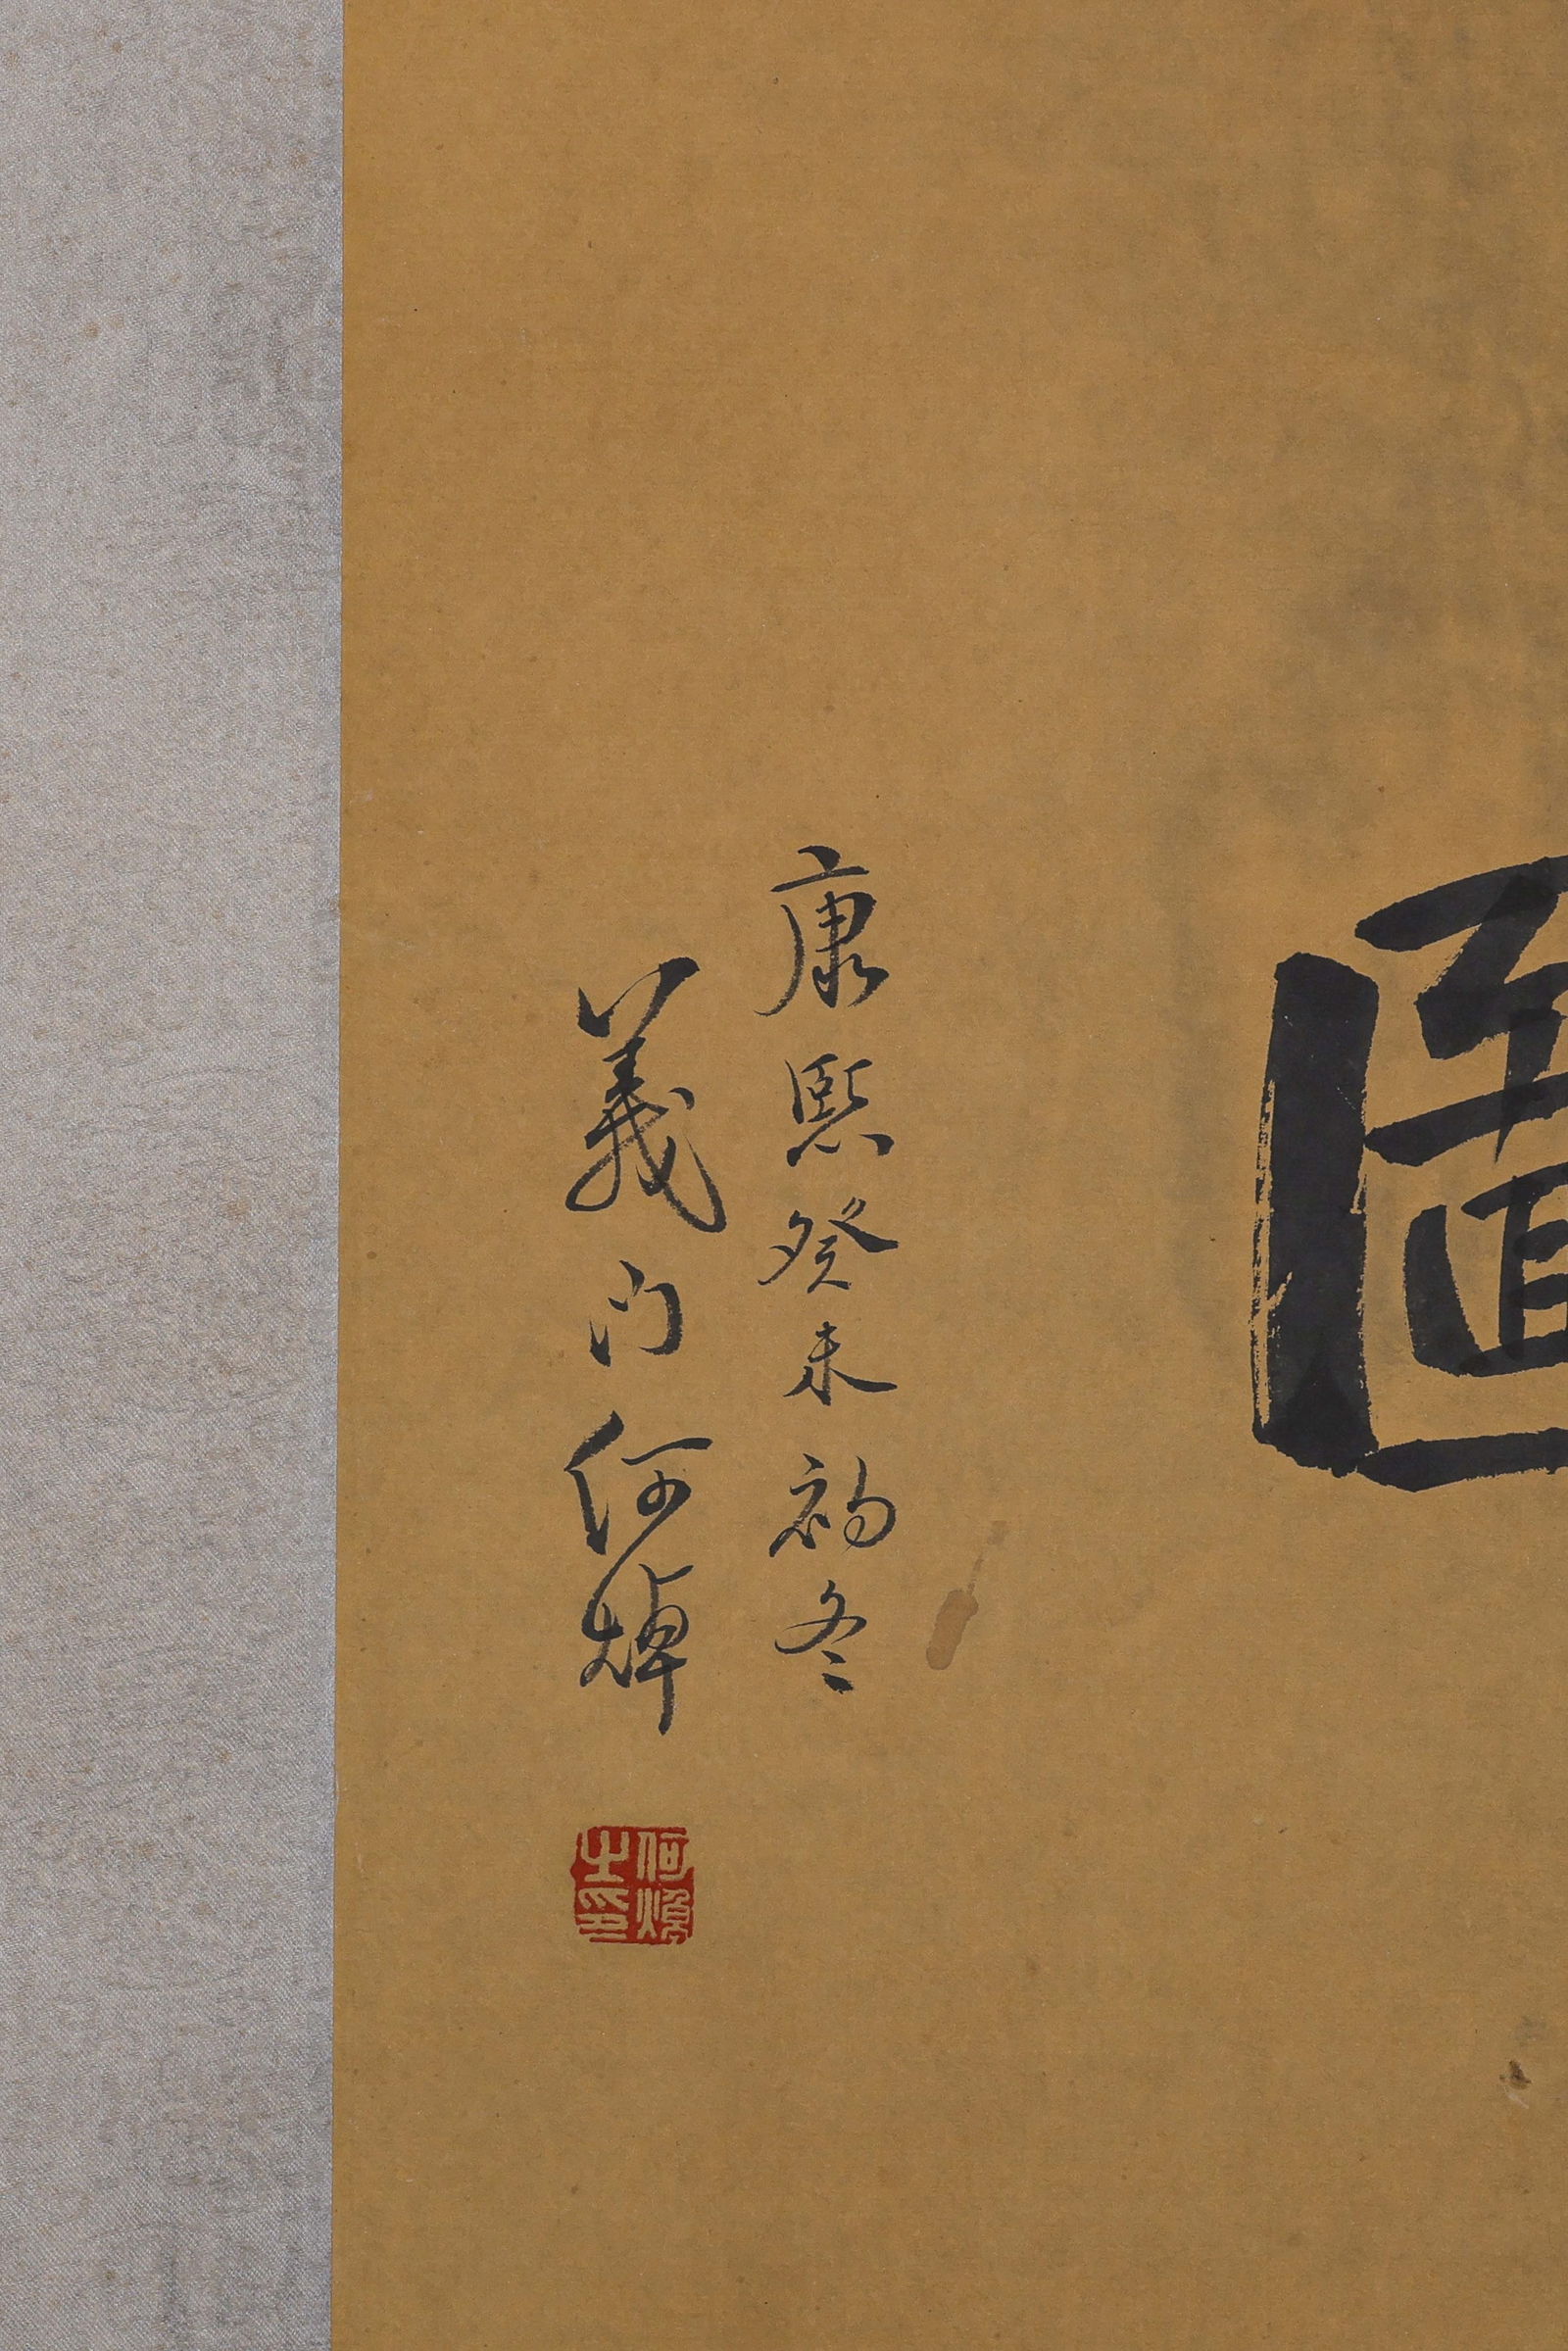 康熙癸未初冬
義门何焯
何焯之印